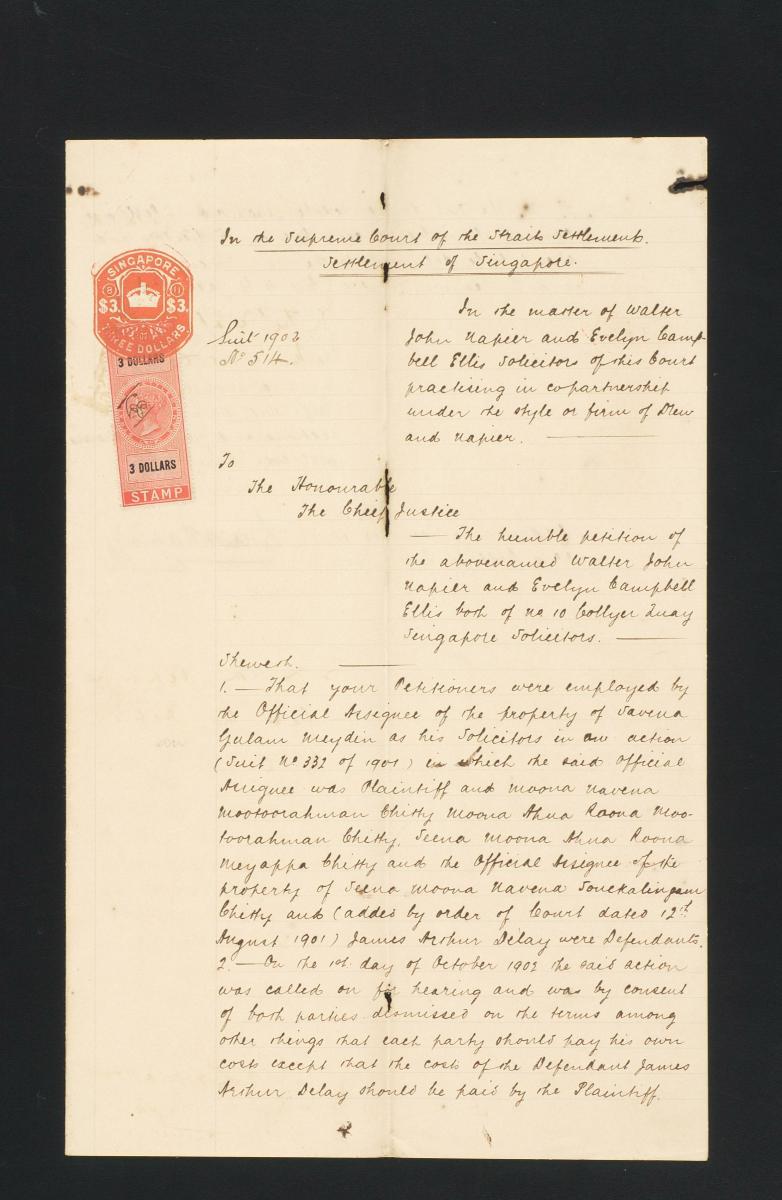 In the Supreme Court of the Straits Settlements.
Settlement of Singapore.
SINGAPORE
8 11
$3. $3.
THREE DOLLARS
3 DOLLARS
3 DOLLARS
STAMP
Suit 1902
No 514.
In the matter of Walter
John Napier and Evelyn Camp-
bell Ellis Solicitors of this Court
practising in copartnership
under the style or firm of Drew
and Napier.
To
The Honourable
The Chief Justice
The humble petition of
the abovenamed Walter John
Napier and Evelyn Campbell
Ellis both of No 10 Collyer Quay
Singapore Solicitors.
Sheweth.
1. — That your Petitioners were employed by
the Official Assignee of the property of Savena
Gulam Meydin as his Solicitors in an action
(Suit No 332 of 1901) in which the said Official
Assignee was Plaintiff and Moona Navena
Mootoorahman Chitty Moona Ahna Roona Moo-
toorahman Chitty, Seena Moona Ahna Roona
Meyappa Chitty and the Official Assignee of the
property of Seena Moona Navena Sonckalingam
Chitty and (added by order of Court dated 12th
August 1901) James Arthur Delay were Defendants.
2. — On the 1st day of October 1902 the said action
was called on for hearing and was by consent
of both parties dismissed on the terms among
other things that each party should pay his own
costs except that the costs of the Defendant James
Arthur Delay should be paid by the Plaintiff.